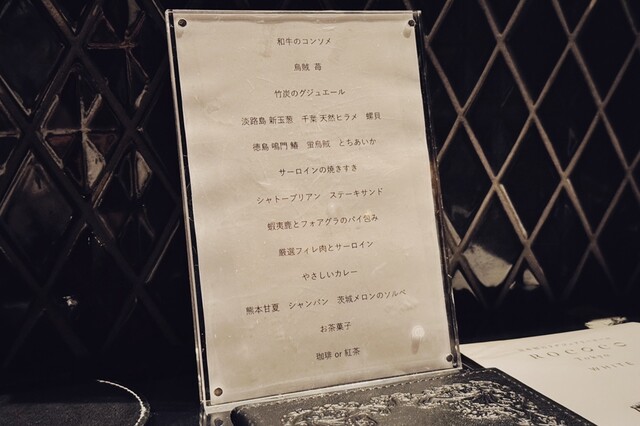 和牛のコンソメ
烏賊 苺
竹炭のグジュエール
淡路島 新玉葱 千葉 天然ヒラメ 螺貝
徳島 鳴門 鰆 蛍烏賊 とちあいか
サーロインの焼きすき
シャトーブリアン ステーキサンド
蝦夷鹿とフォアグラのパイ包み
厳選フィレ肉とサーロイン
やさしいカレー
熊本甘夏 シャンパン 茨城メロンのソルベ
お茶菓子
珈琲 or 紅茶
ROCOCO
WHITE